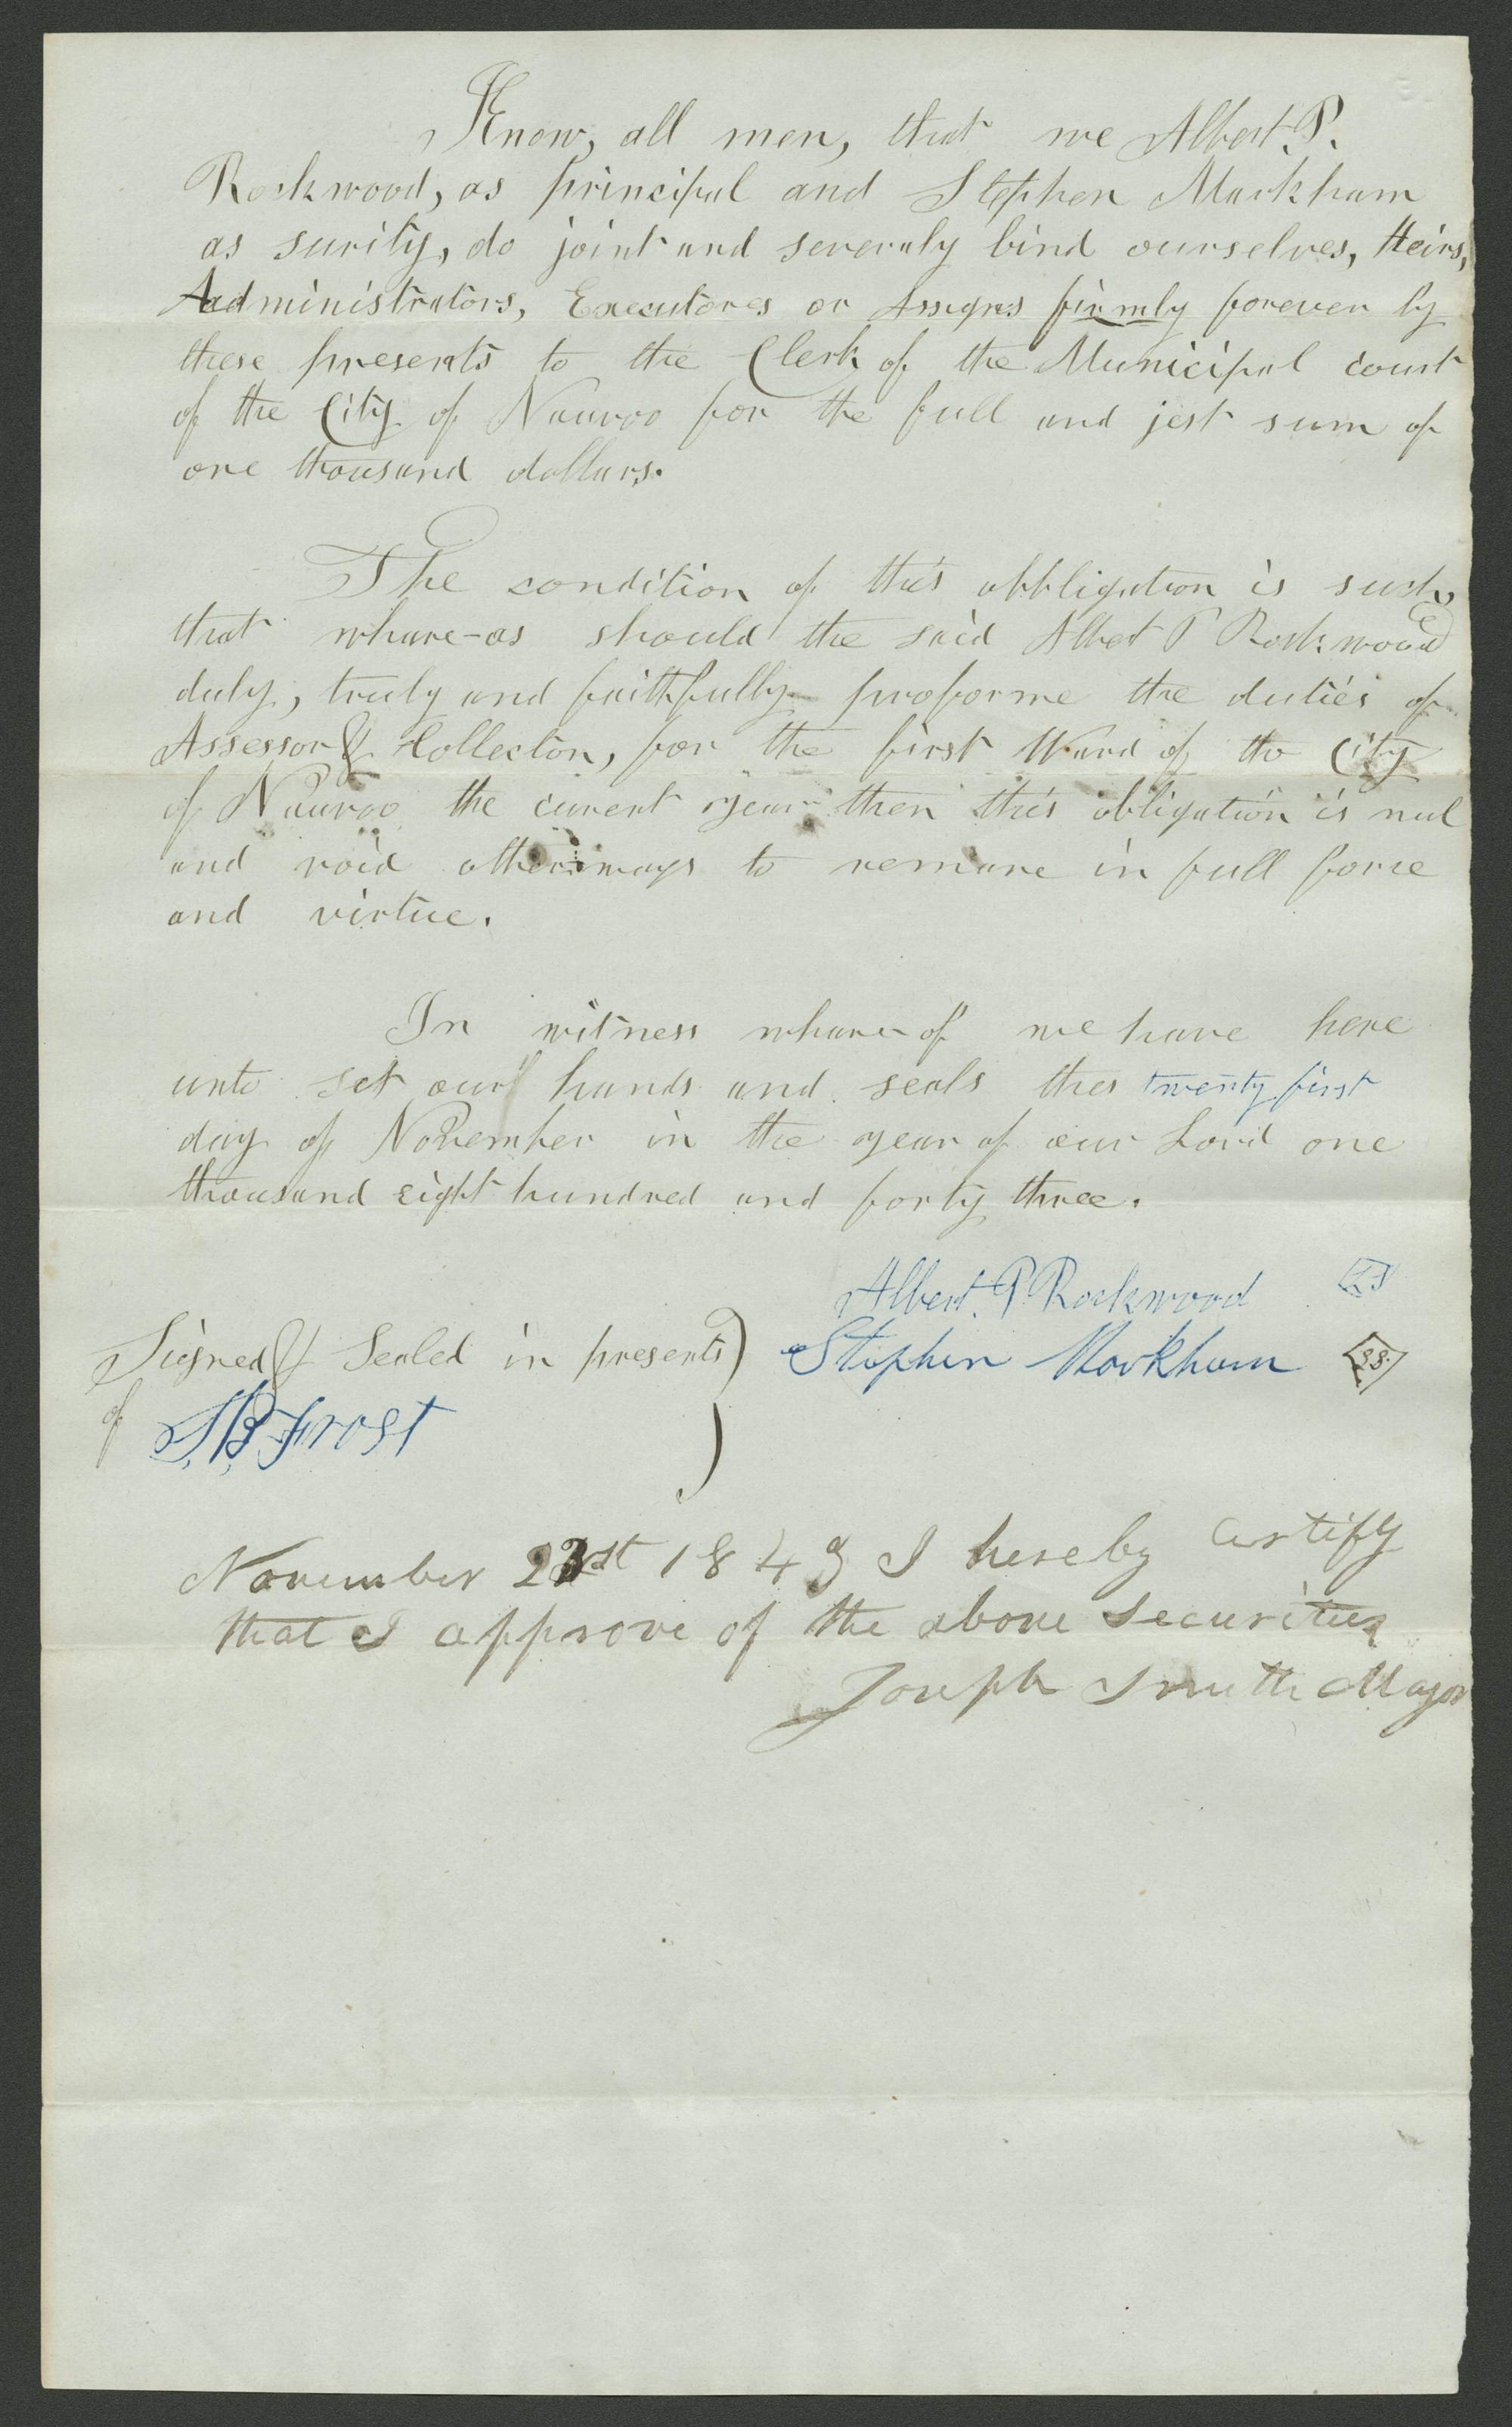 Know, all men, that we Albert. P.
Rockwood, as principal and Stephen Markham
as surity, do joint and severaly bind ourselves, Heirs,
Aadministrators, Executores or Assigns firmly forever by
these presents to the Clerk of the Municipal court
of the City of Nauvoo for the full and jest sum of
one thousand dollars.
The condition of this obbligation is such,
that whare-as should the said Albert P Rockwood
duly, truly and faithfully proforme the duties of
Assessor & Collector, for the first Ward of the City
of Nauvoo the curent year then this obligation is nul
and void otherways to remane in full force
and virtue.
In witness whare-of we have here
unto set our hands and seals this twenty first
day of November in the year of our Lord one
thousand eight hundred and forty three.
Albert. P. Rockwood LS
Signed & Sealed in presents) Stephen Markham
of S. B. Frost )
November 21st 1843 I hereby certify
that I approve of the above securities
Joseph Smith Mayor